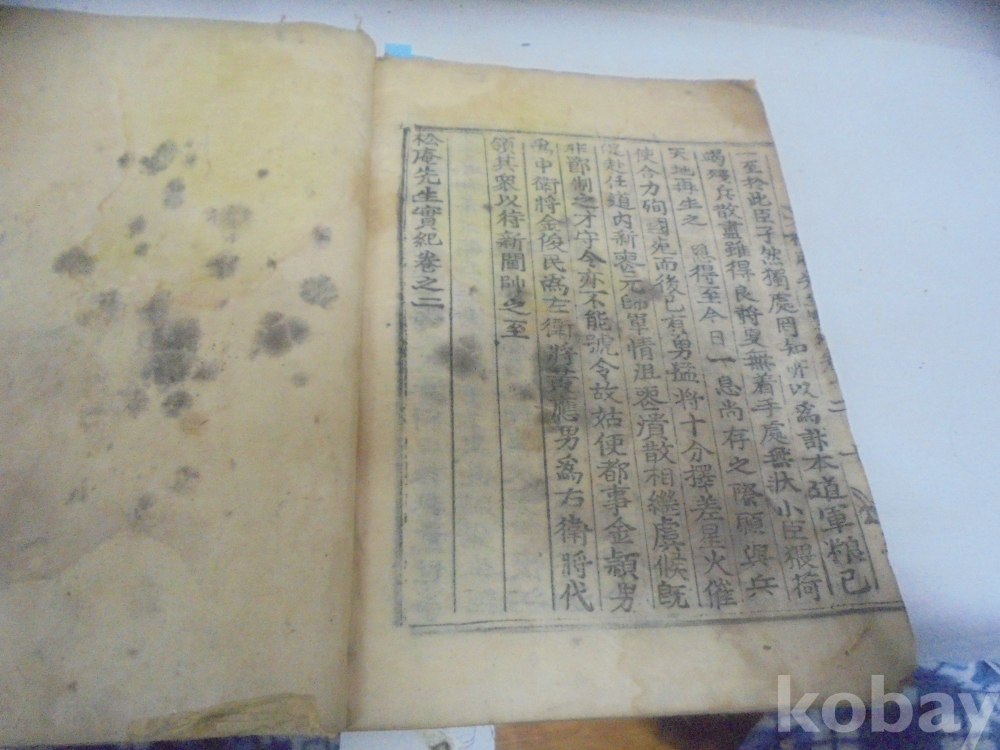 一至於此臣子然獨處罔知所以爲計本道軍粮已
竭殘兵散盡雖得良將更無着手處無狀小臣猥荷
天地再生之 恩得至今日一息尚存之際願與兵
使合力殉國死而後已有勇猛將十分擇差星火催
促赴任道內新喪元帥軍情沮喪潰散相繼虞候旣
非鄙制之才守令亦不能號令故姑使都事金穎男
爲中衛將金俊民爲左衛將 應男爲右衛將代
領其衆以待新閫帥之至
松庵先生實紀卷之二
kobay